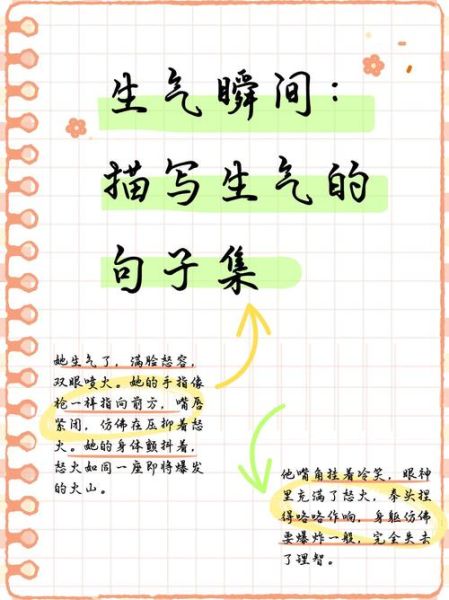 生气瞬间：
描写生气的
句子集
她生气了，满脸怒容，
双眼喷火。她的手指像
枪一样指向前方，嘴唇
紧闭，仿佛在压抑着怒
火。她的身体颤抖着，
怒火如同一座即将爆发
的火山。
他嘴角挂着冷笑，眼神
里充满了怒火，拳头捏
得咯咯作响，身躯仿佛
要爆炸一般，完全失去
了理智。